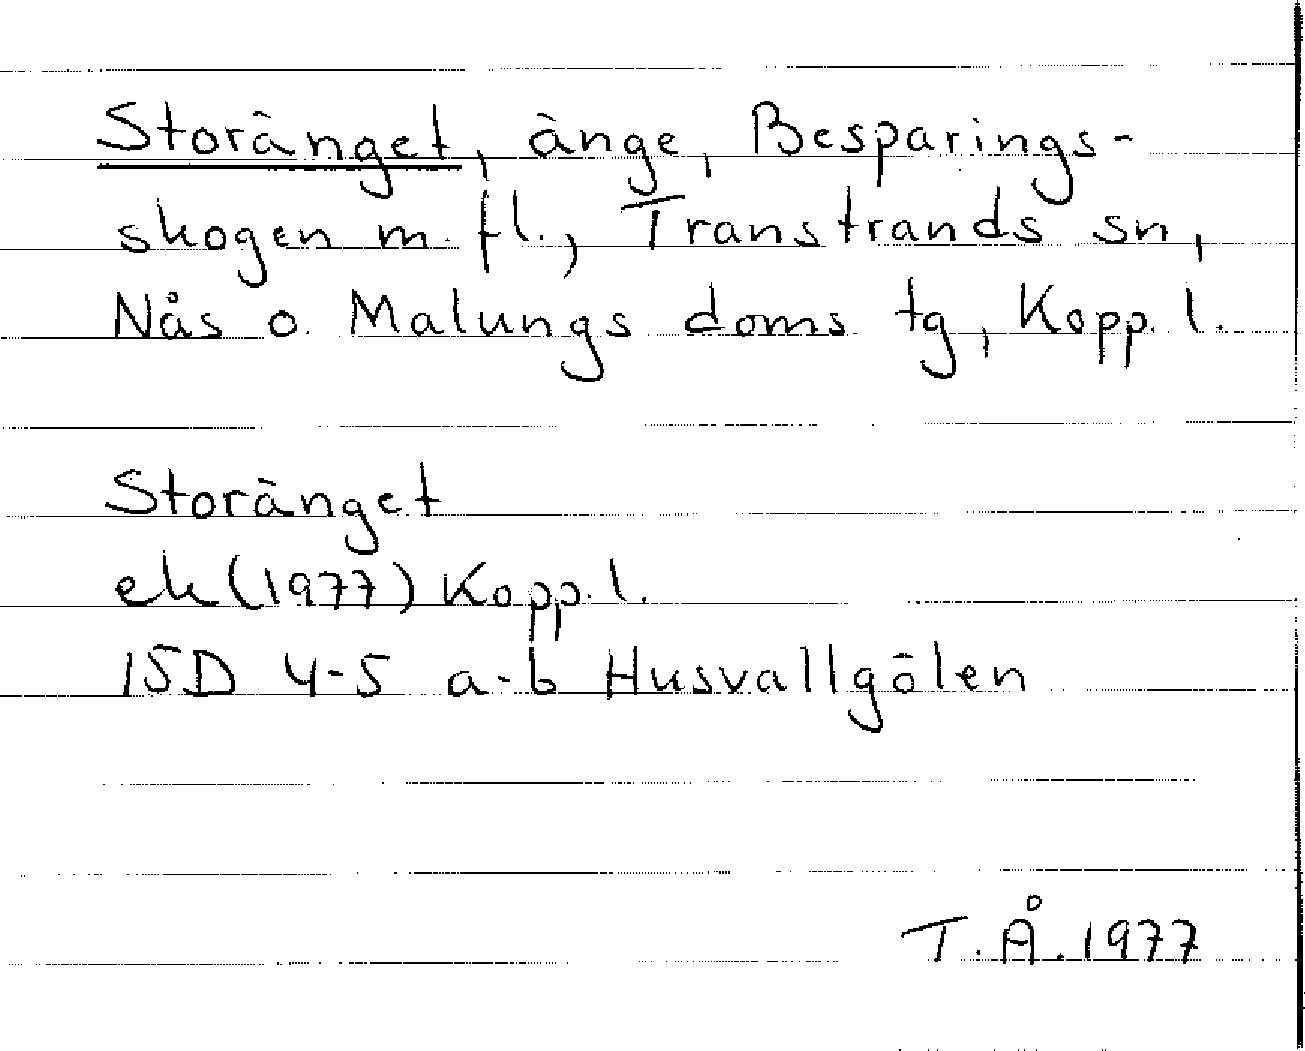 Storänget, änge, Besparings-
skogen m. fl., Transtrands sn,
Nås o. Malungs doms tg, Kopp. l.
Storänget
ek (1977) Kopp. l.
15D 4-5 a-b Husvallgölen
T. Å. 1977